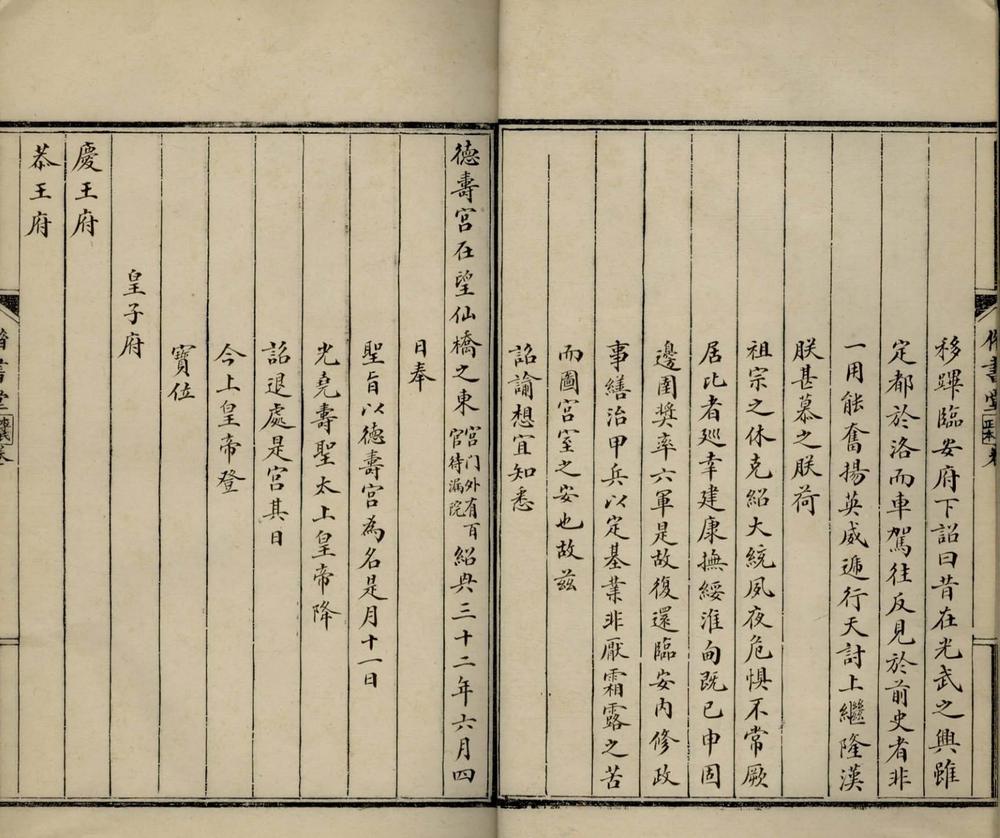 移蹕臨安府下詔曰昔在光武之興雖
定都於洛而車駕往反見於前史者非
一用能奮揚英威遞行天討上繼隆漢
朕甚慕之朕荷
祖宗之休克紹大統夙夜危惧不常厥
居比者廵幸建康撫綏淮甸既已申固
邊圉奨率六軍是故復還臨安内修政
事繕治甲兵以定基業非厭霜露之苦
而圖宫室之安也故兹
詔諭想宜知悉
德壽宫在望仙橋之東宫門外有百官待漏院紹興三十二年六月四
日奉
聖旨以德壽宫為名是月十一日
光堯壽聖太上皇帝降
詔退處是宫其日
今上皇帝登
寶位
皇子府
慶王府
恭王府